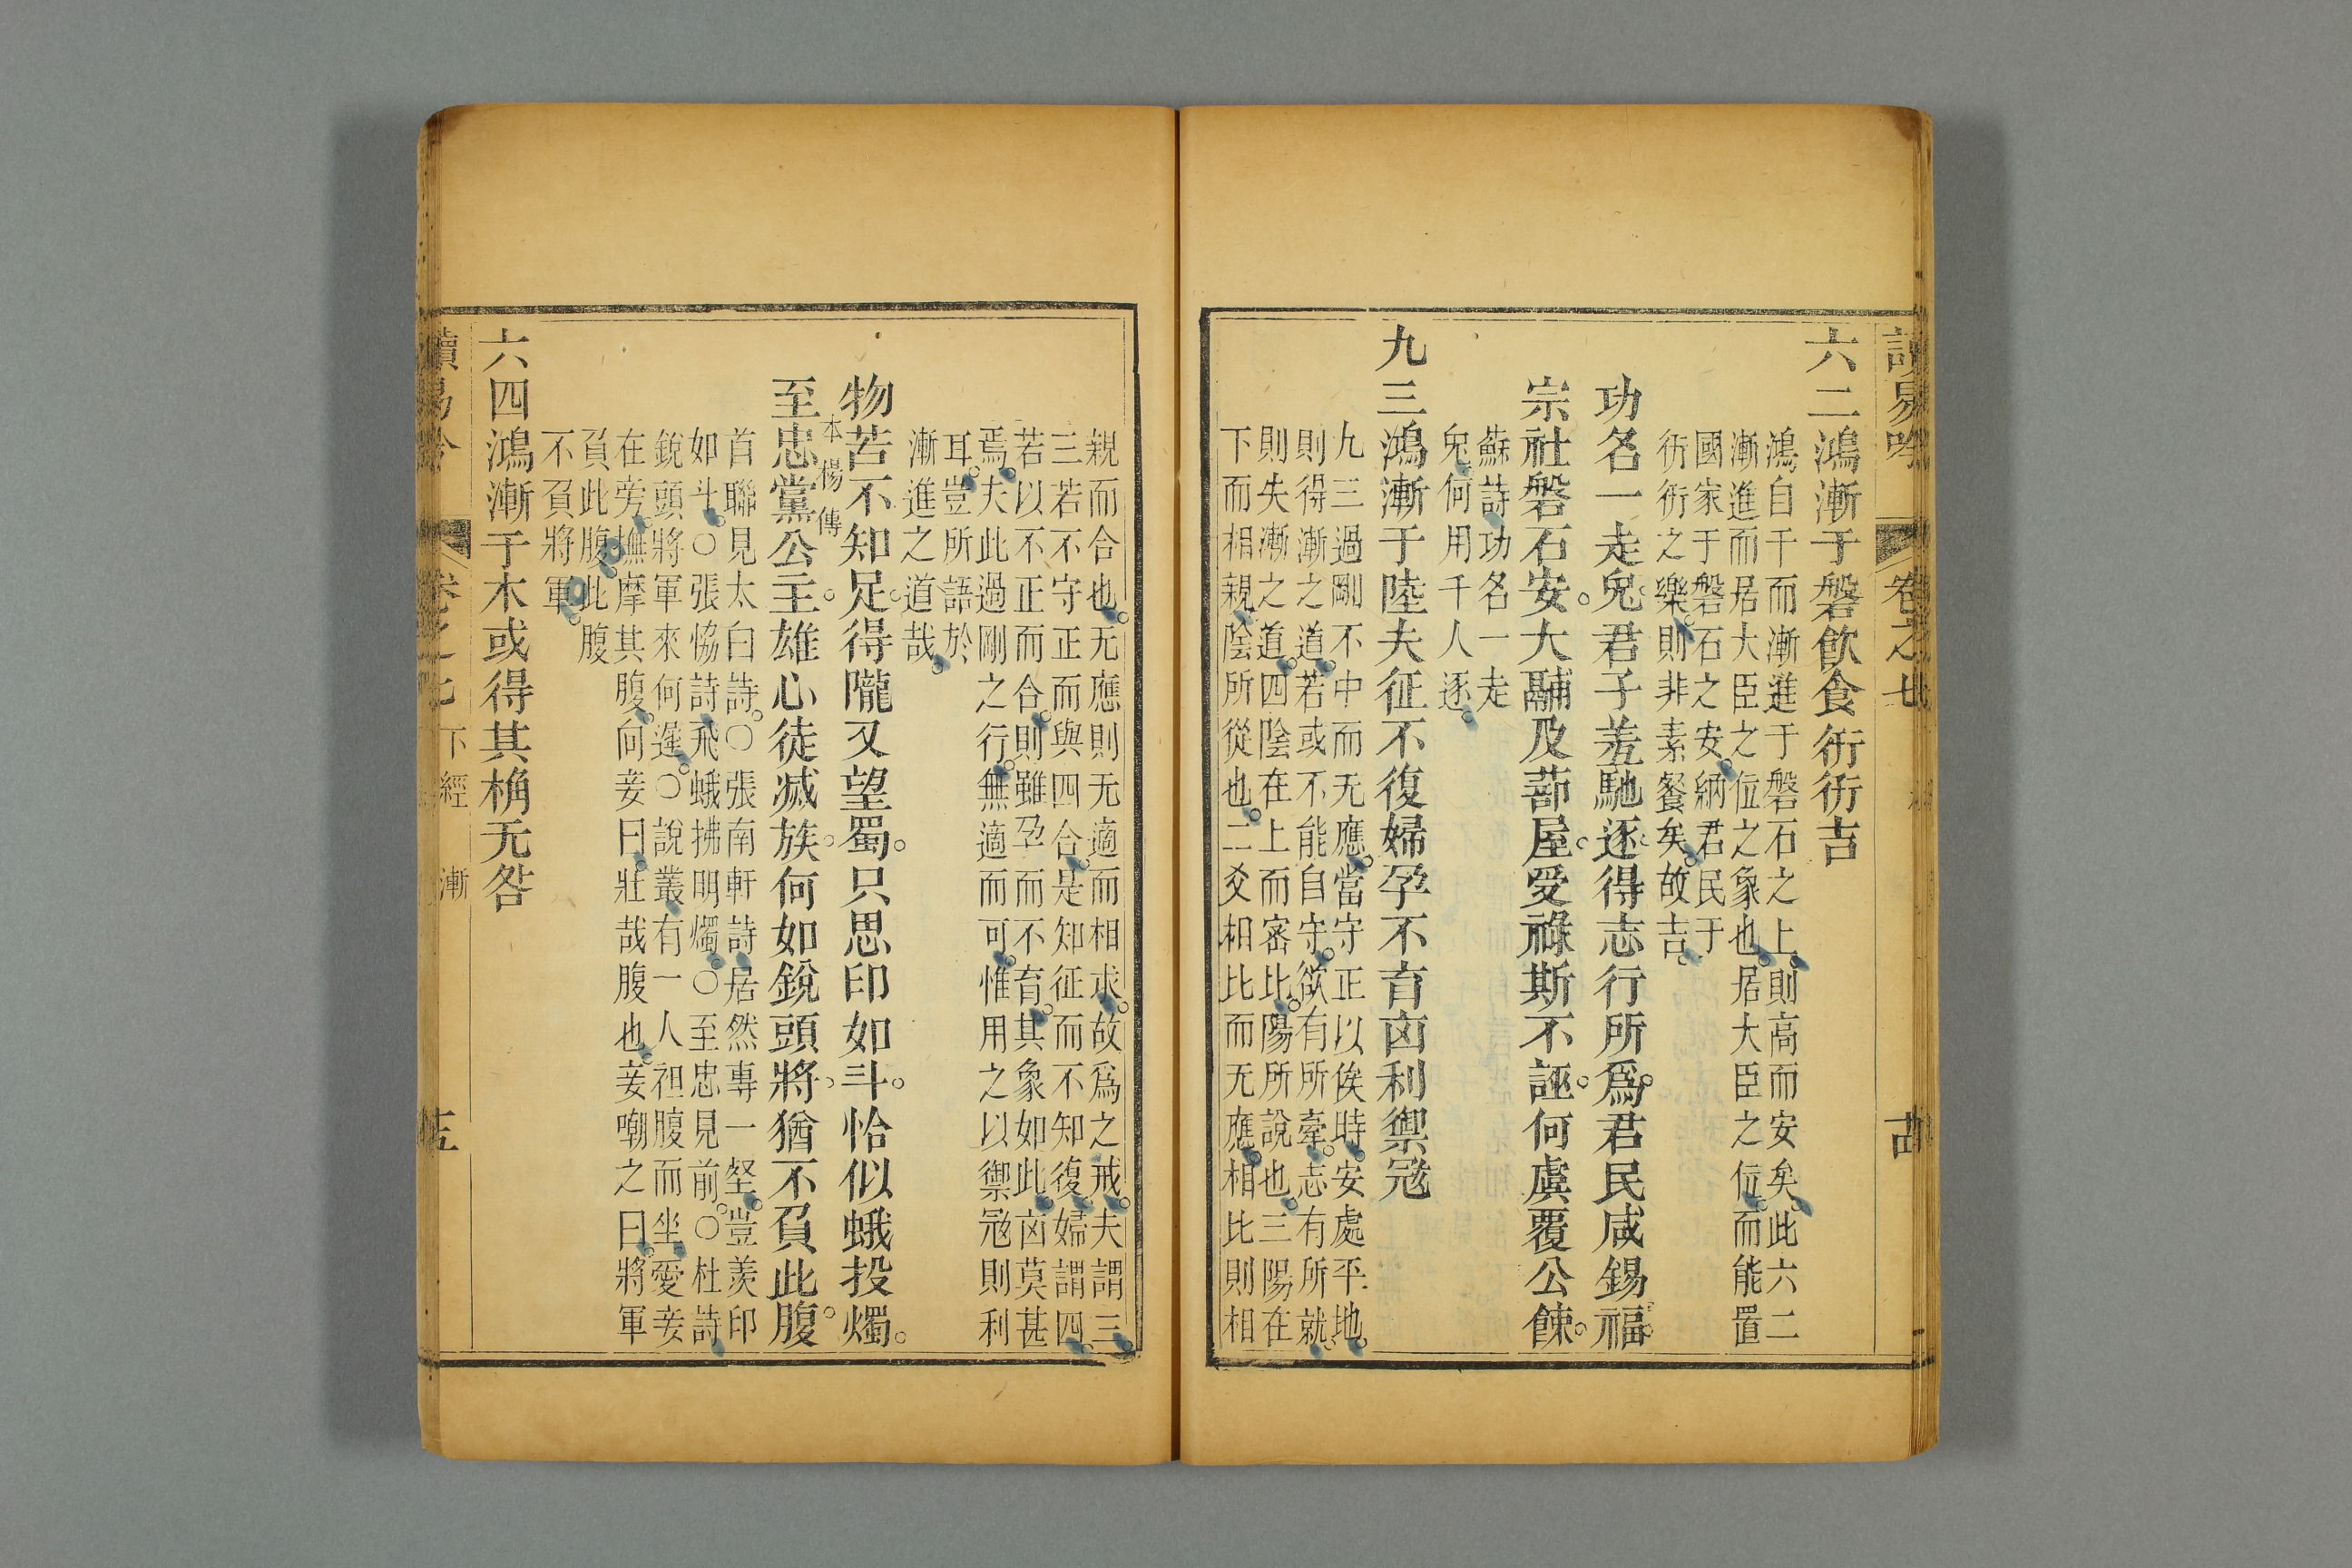 讀易吟 卷之七 漸 古
六二鴻漸于磐飲食衎衎吉
鴻自干而漸進于磐石之上則高而安矣此六二
漸進而居大臣之位之象也居大臣之位而能置
國家于磐石之安納君民于
衎衎之樂則非素餐矣故吉
功名一走兔君子羞馳逐得志行所爲君民咸錫福
宗社磐石安大黼及蔀屋愛祿斯不誣何虞覆公餗
蘇詩功名一走
兔何用千人逐
九三鴻漸于陸夫征不復婦孕不育凶利禦冦
九三過剛不中而无應當守正以俟時安處平地
則得漸之道若或不能自守欲有所牽志有所就
則失漸之道四陰在上而密比陽所說也三陽在
下而相親陰所從也二爻相比而无應相比則相
親而合也无應則无適而相求故爲之戒夫謂三
三若不守正而與四合是知征而不知復婦謂四
若以不正而合則雖孕而不育其象如此凶莫甚
焉夫此過剛之行無適而可惟用之以禦冦則利
耳豈所語於
漸進之道哉
物苦不知足得隴又望蜀只思印如斗恰似蛾投燭
本楊傳
至忠黨公主雄心徒滅族何如銳頭將猶不負此腹
首聯見太白詩○張南軒詩居然專一壑豈羨印
如斗○張恊詩飛蛾拂明燭○至忠見前○杜詩
銳頭將軍來何遲○說叢有一人袒腹而坐愛妾
在旁撫摩其腹向妾曰壯哉腹也妾嘲之曰將軍
負此腹此腹
不負將軍
六四鴻漸于木或得其桷无咎
讀易吟 卷之七 下經 漸 十五